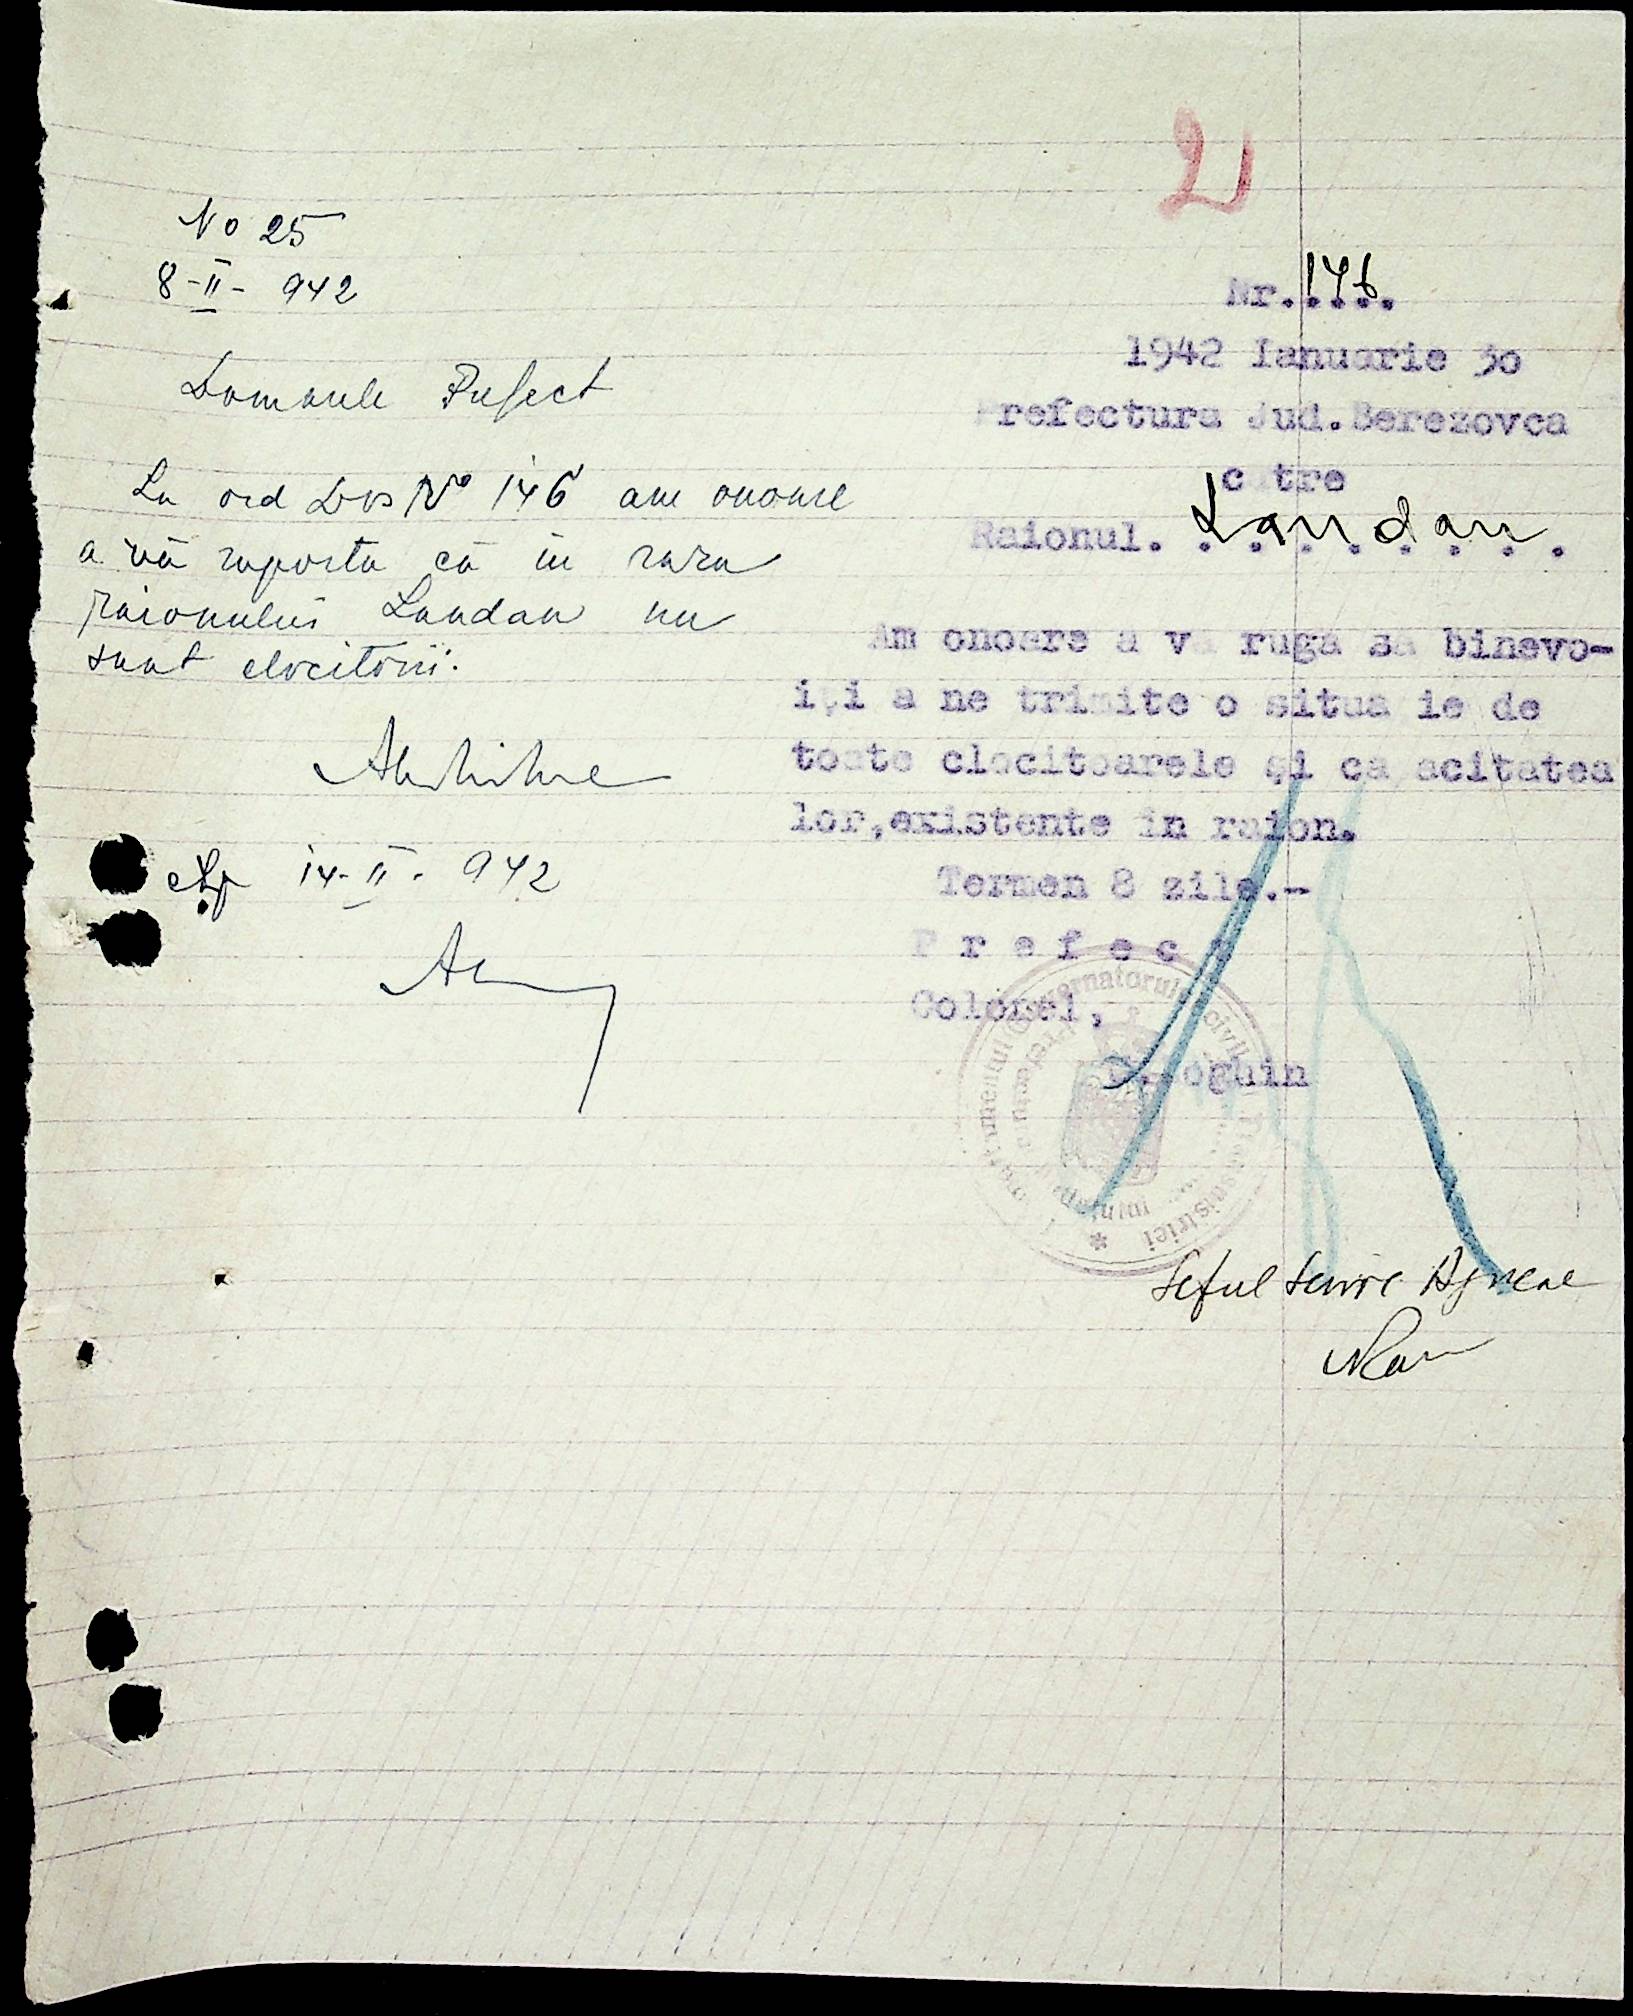 2
No 25
8-II-942
Domnule Prefect
La ord Dvs No 146 am onoare
a vă raporta că în raza
raionului Landau nu
sunt clocitorii.
14-II-942
Nr. 146
1942 Ianuarie 30
Prefectura Jud.Berezovca
c tre
Raionul. Landau
Am onoare a v ruga sa binevo-
i,i a ne trimite o situa ie de
toate clocitoarele și ca acitatea
lor,existente în raion.
Termen 8 zile.-
Prefect
Colonel,
Loghin
Seful Servic Agricol